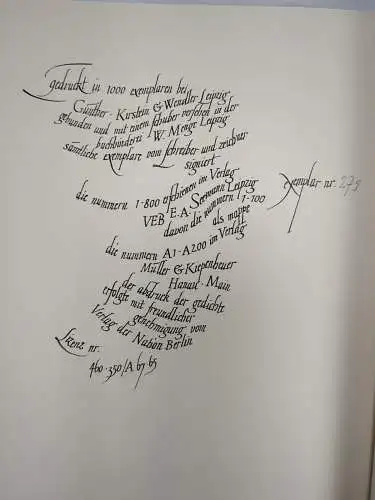 gedruckt in 1000 exemplaren bei
Günther · Kirstein & Wendler Leipzig
gebunden und mit einem schuber versehen in der
buchbinderei W. Menge Leipzig
sämtliche exemplare vom schreiber und zeichner
signiert
die nummern 1-800 erschienen im Verlag
VEB E.A. Seemann Leipzig
davon die nummern 1-100
als mappe
die nummern A1-A200 im Verlag
Müller & Kiepenheuer
Hanau · Main
der abdruck der gedichte
erfolgte mit freundlicher
genehmigung vom
Verlag der Nation Berlin
Lizenz nr.
460·350/A 67 65
exemplar nr. 279